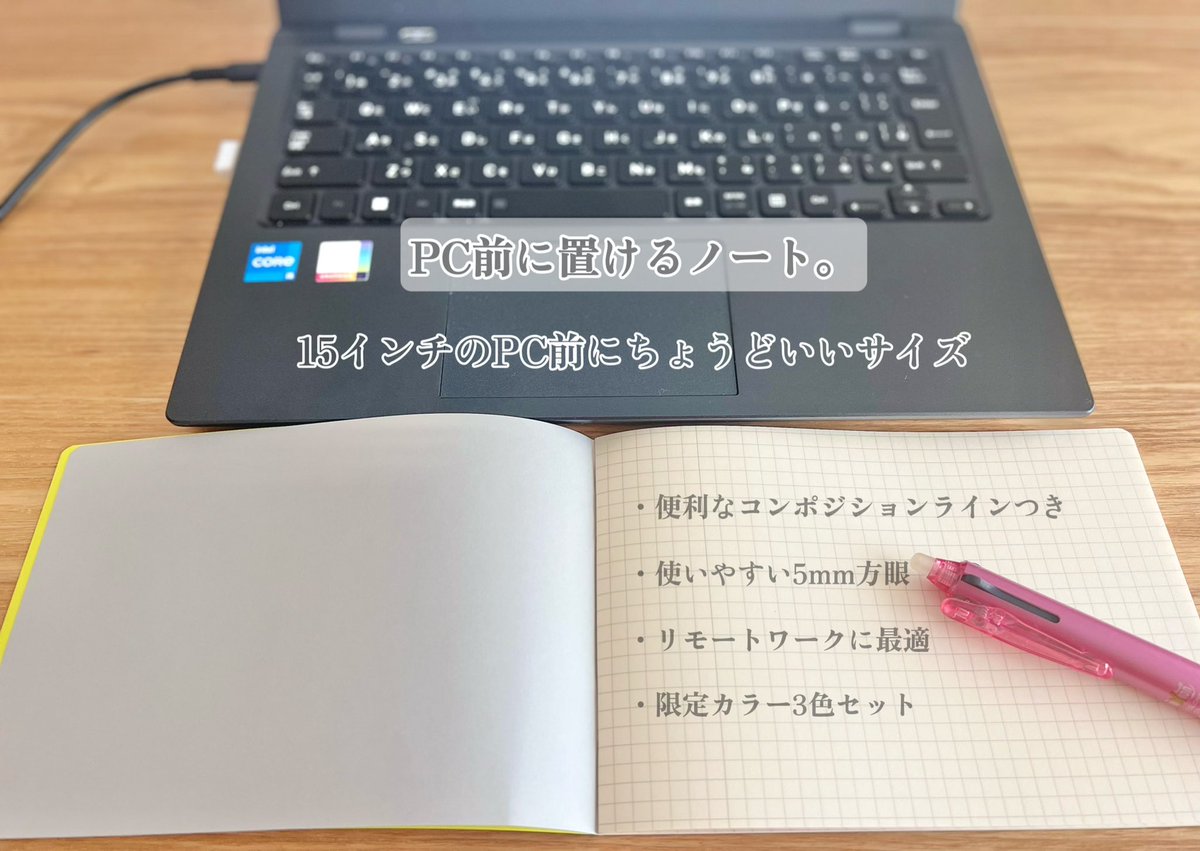 Q W E R T Y U I O P
A S D F G H J K L
Z X C V B N M
intel
CORE
i5
PC前に置けるノート。
15インチのPC前にちょうどいいサイズ
・便利なコンポジションラインつき
・使いやすい5mm方眼
・リモートワークに最適
・限定カラー3色セット